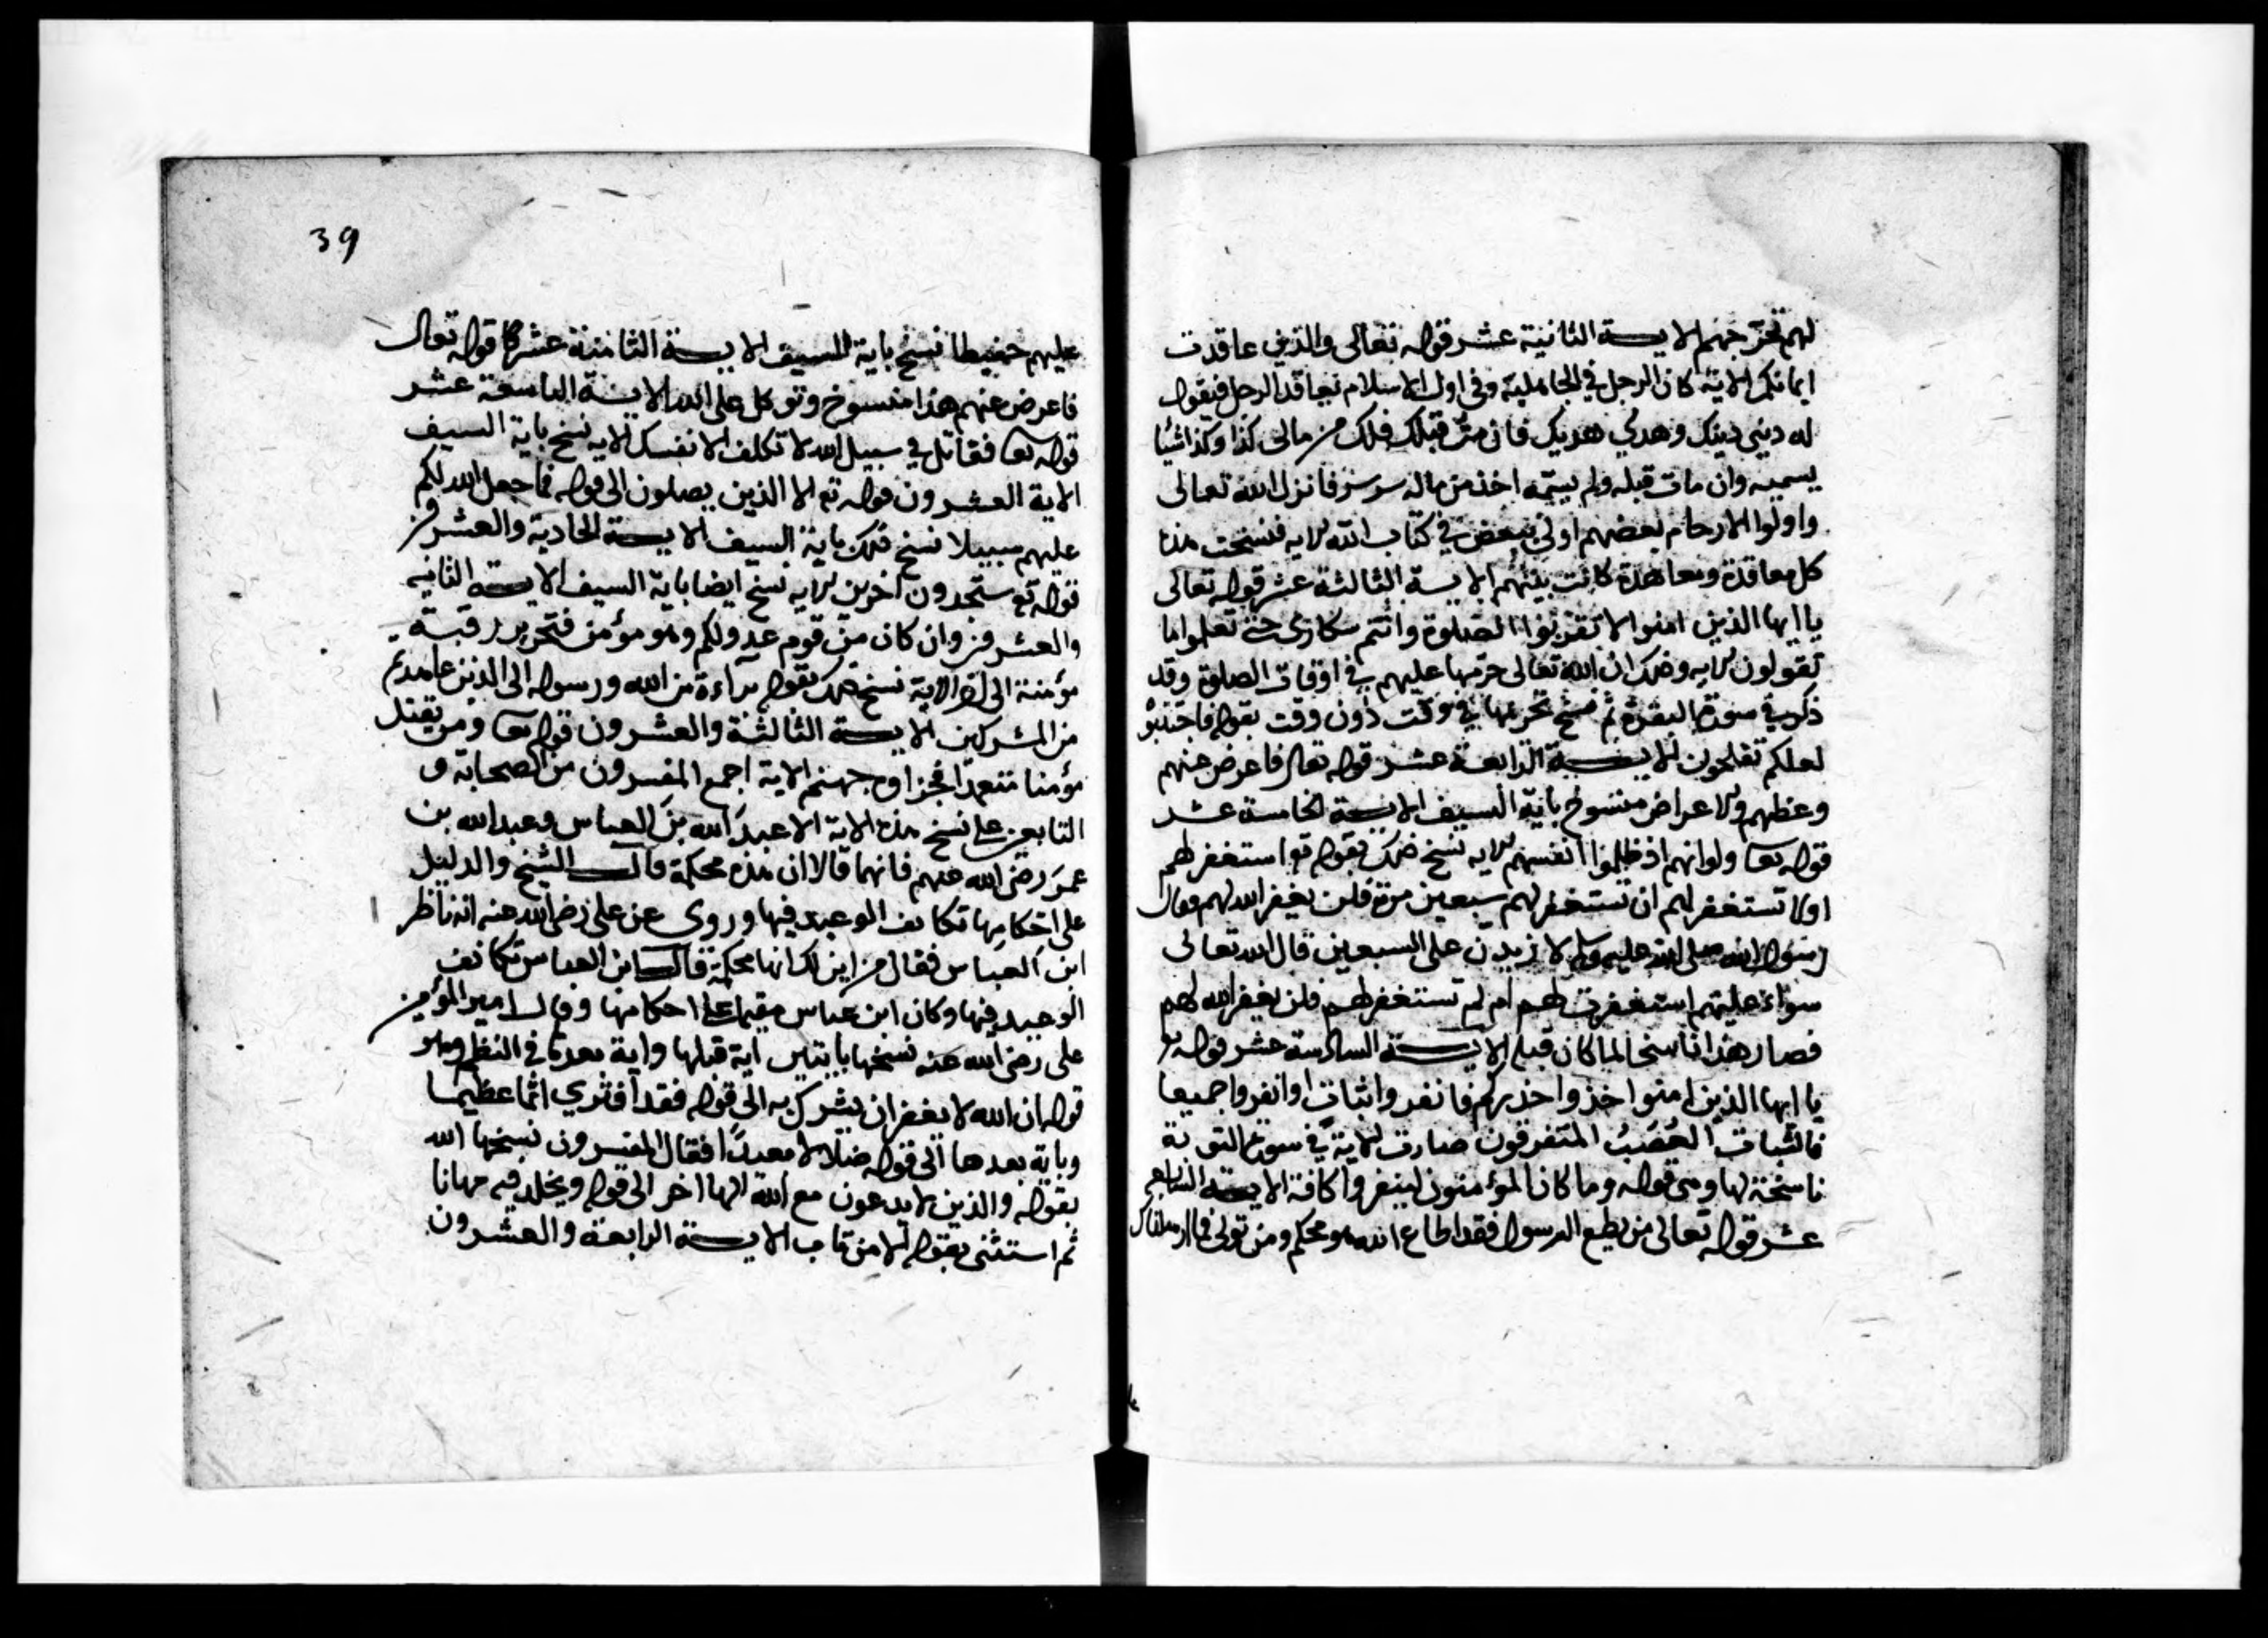 لهم تخرجهم الاية الثانية عشر قوله تعالى والذين عاقدت
ايمانكم الاية كان الرجل في الجاهلية وفي اول الاسلام يعاقد الرجل فيقول
له ديني دينك وهدي هديك فان مت قبلك فلك من مالى كذا وكذا شيئا
يسميه وان مات قبله ولم يسمه اخذ من ماله سدسه فانزل الله تعالى
واولوا الارحام بعضهم اولى ببعض في كتاب الله الايه فنسخت هذا
كل معاقدة ومعاهدة كانت بينهم الاية الثالثة عشر قوله تعالى
يا ايها الذين امنوا لا تقربوا الصلوة وانتم سكارى حتى تعلموا ما
تقولون الايه وذلك ان الله تعالى حرمها عليهم في اوقات الصلوة وقد
ذكر في سورة البقرة ثم نسخ تحريمها في وقت دون وقت بقوله فاجتنبوه
لعلكم تفلحون الاية الرابعة عشر قوله تعالى فاعرض عنهم
وعظهم والاعراض منسوخ باية السيف الاية الخامسة عشر
قوله تعا ولو انهم اذ ظلموا انفسهم الايه نسخ ذلك بقوله تع استغفر لهم
اولا تستغفر لهم ان تستغفر لهم سبعين مرة فلن يغفر الله لهم وقال
رسول الله صلى الله عليه وسلم لا زيدن على السبعين قال الله تعالى
سواء عليهم استغفرت لهم ام لم تستغفر لهم فلن يغفر الله لهم
فصار هذا ناسخا لما كان قبله الاية السادسة عشر قوله تع
يا ايها الذين امنوا خذوا حذركم فانفروا ثبات او انفروا جميعا
فالثبات العصب المتفرقون صارت الاية في سورة التوبة
ناسخة لها وهى قوله وما كان المؤمنون لينفروا كافة الاية السابعة
عشر قوله تعالى من يطع الرسول فقد اطاع الله هو محكم ومن تولى فما ارسلناك
39
عليهم حفيظا نسخ باية السيف الاية الثامنة عشر قوله تعالى
فاعرض عنهم هذا منسوخ وتوكل على الله الاية التاسعة عشر
قوله تعا فقاتل في سبيل الله لا تكلف الا نفسك الايه نسخ باية السيف
الاية العشرون قوله تع الا الذين يصلون الى قوله فما جعل الله لكم
عليهم سبيلا نسخ ذلك باية السيف الاية الحادية والعشرون
قوله تع ستجدون اخرين الايه نسخ ايضا باية السيف الاية الثانيه
والعشرون وان كان من قوم عدو لكم وهو مؤمن فتحرير رقبة
مؤمنة الى اخر الاية نسخ ذلك بقوله براءة من الله ورسوله الى الذين عاهدتم
من المشركين الاية الثالثة والعشرون قوله تعا ومن يقتل
مؤمنا متعمدا فجزاوه جهنم الاية اجمع المفسرون من الصحابة و
التابعين على نسخ هذه الاية الا عبد الله بن العباس وعبد الله بن
عمر رضى الله عنهم فانهما قالا ان هذه محكمة قال الشيخ والدليل
على احكامها تكاثف الوعيد فيها وروى عن على رضى الله عنه انه ناظر
ابن العباس فقال من اين لك انها محكمة قال ابن العباس تكاثف
الوعيد فيها وكان ابن عباس مقيما على احكامها وقال امير المؤمنين
على رضى الله عنه نسخها بايتين اية قبلها واية بعدها في النظم وهو
قوله ان الله لا يغفر ان يشرك به الى قوله فقد افترى اثما عظيما
وباية بعدها الى قوله ضلالا بعيدا فقال المفسرون نسخها الله
بقوله والذين لا يدعون مع الله الها اخر الى قوله ويخلد فيه مهانا
ثم استثنى بقوله الا من تاب الاية الرابعة والعشرون